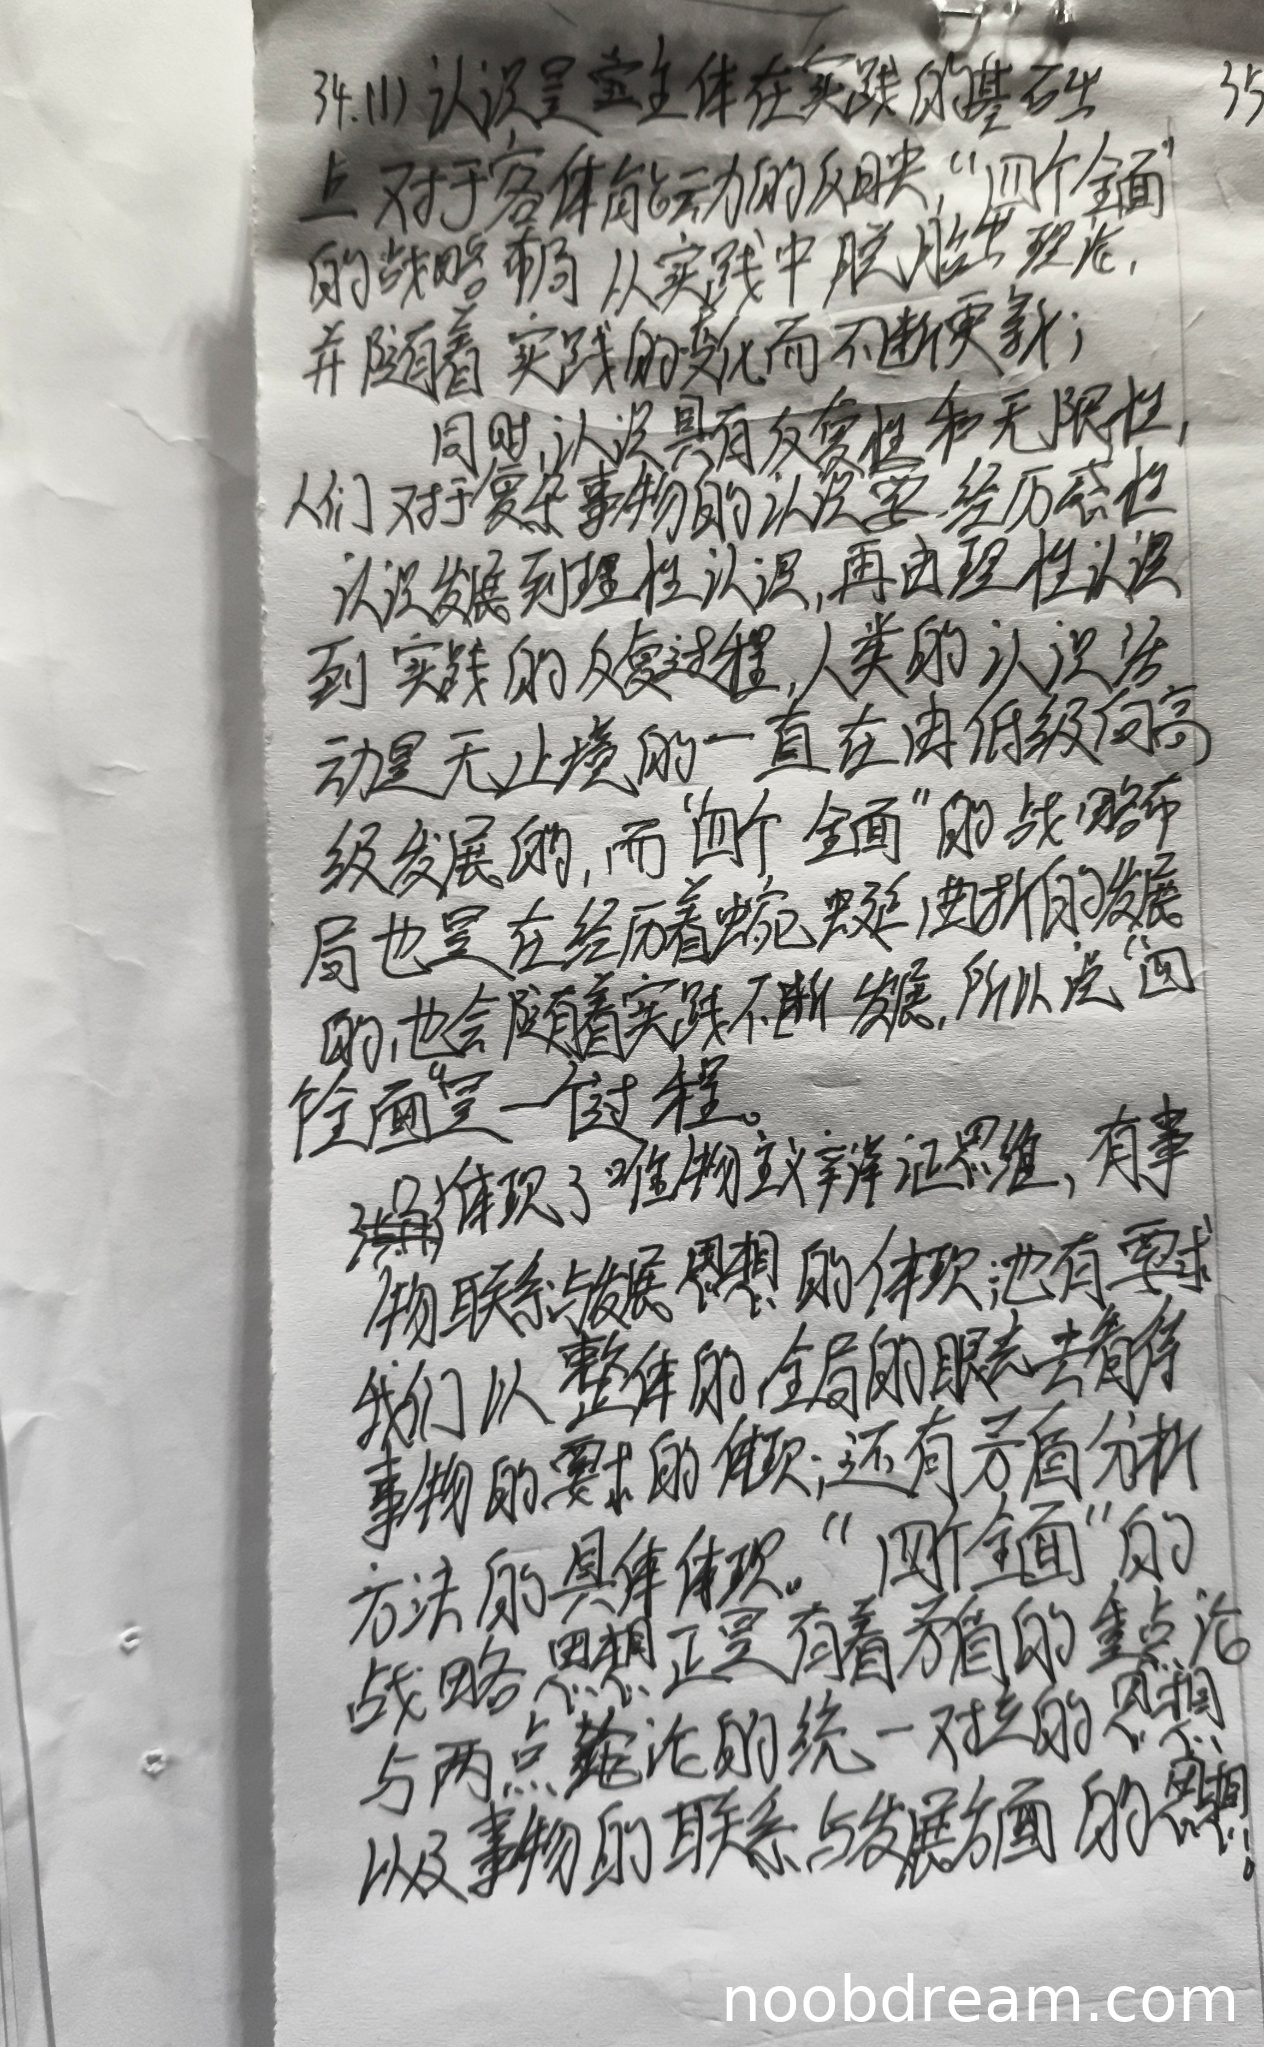 34.(1)认识是主体在实践的基础
35
上对于客体能动的反映,“四个全面”
的战略布局从实践中脱胎出理论,
并随着实践的变化而不断更新;
同时,认识具有反复性和无限性,
人们对于复杂事物的认识要经历感性
认识发展到理性认识,再由理性认识
到实践的反复过程,人类的认识活
动是无止境的一直在由低级向高
级发展的,而“四个全面”的战略布
局也是在经历着蜿蜒曲折的发展
的,也会随着实践不断发展,所以说“四
个全面”是一个过程。
体现了唯物主义辩证思维,有事
物联系与发展思想的体现;也有要求
我们以整体的全局的眼光去看待
事物的要求的体现;还有矛盾分析
方法的具体体现。“四个全面”的
战略思想正是有着矛盾的重点论
与两点论的统一对立的思想
以及事物的联系与发展方面的思想!
noobdream.com